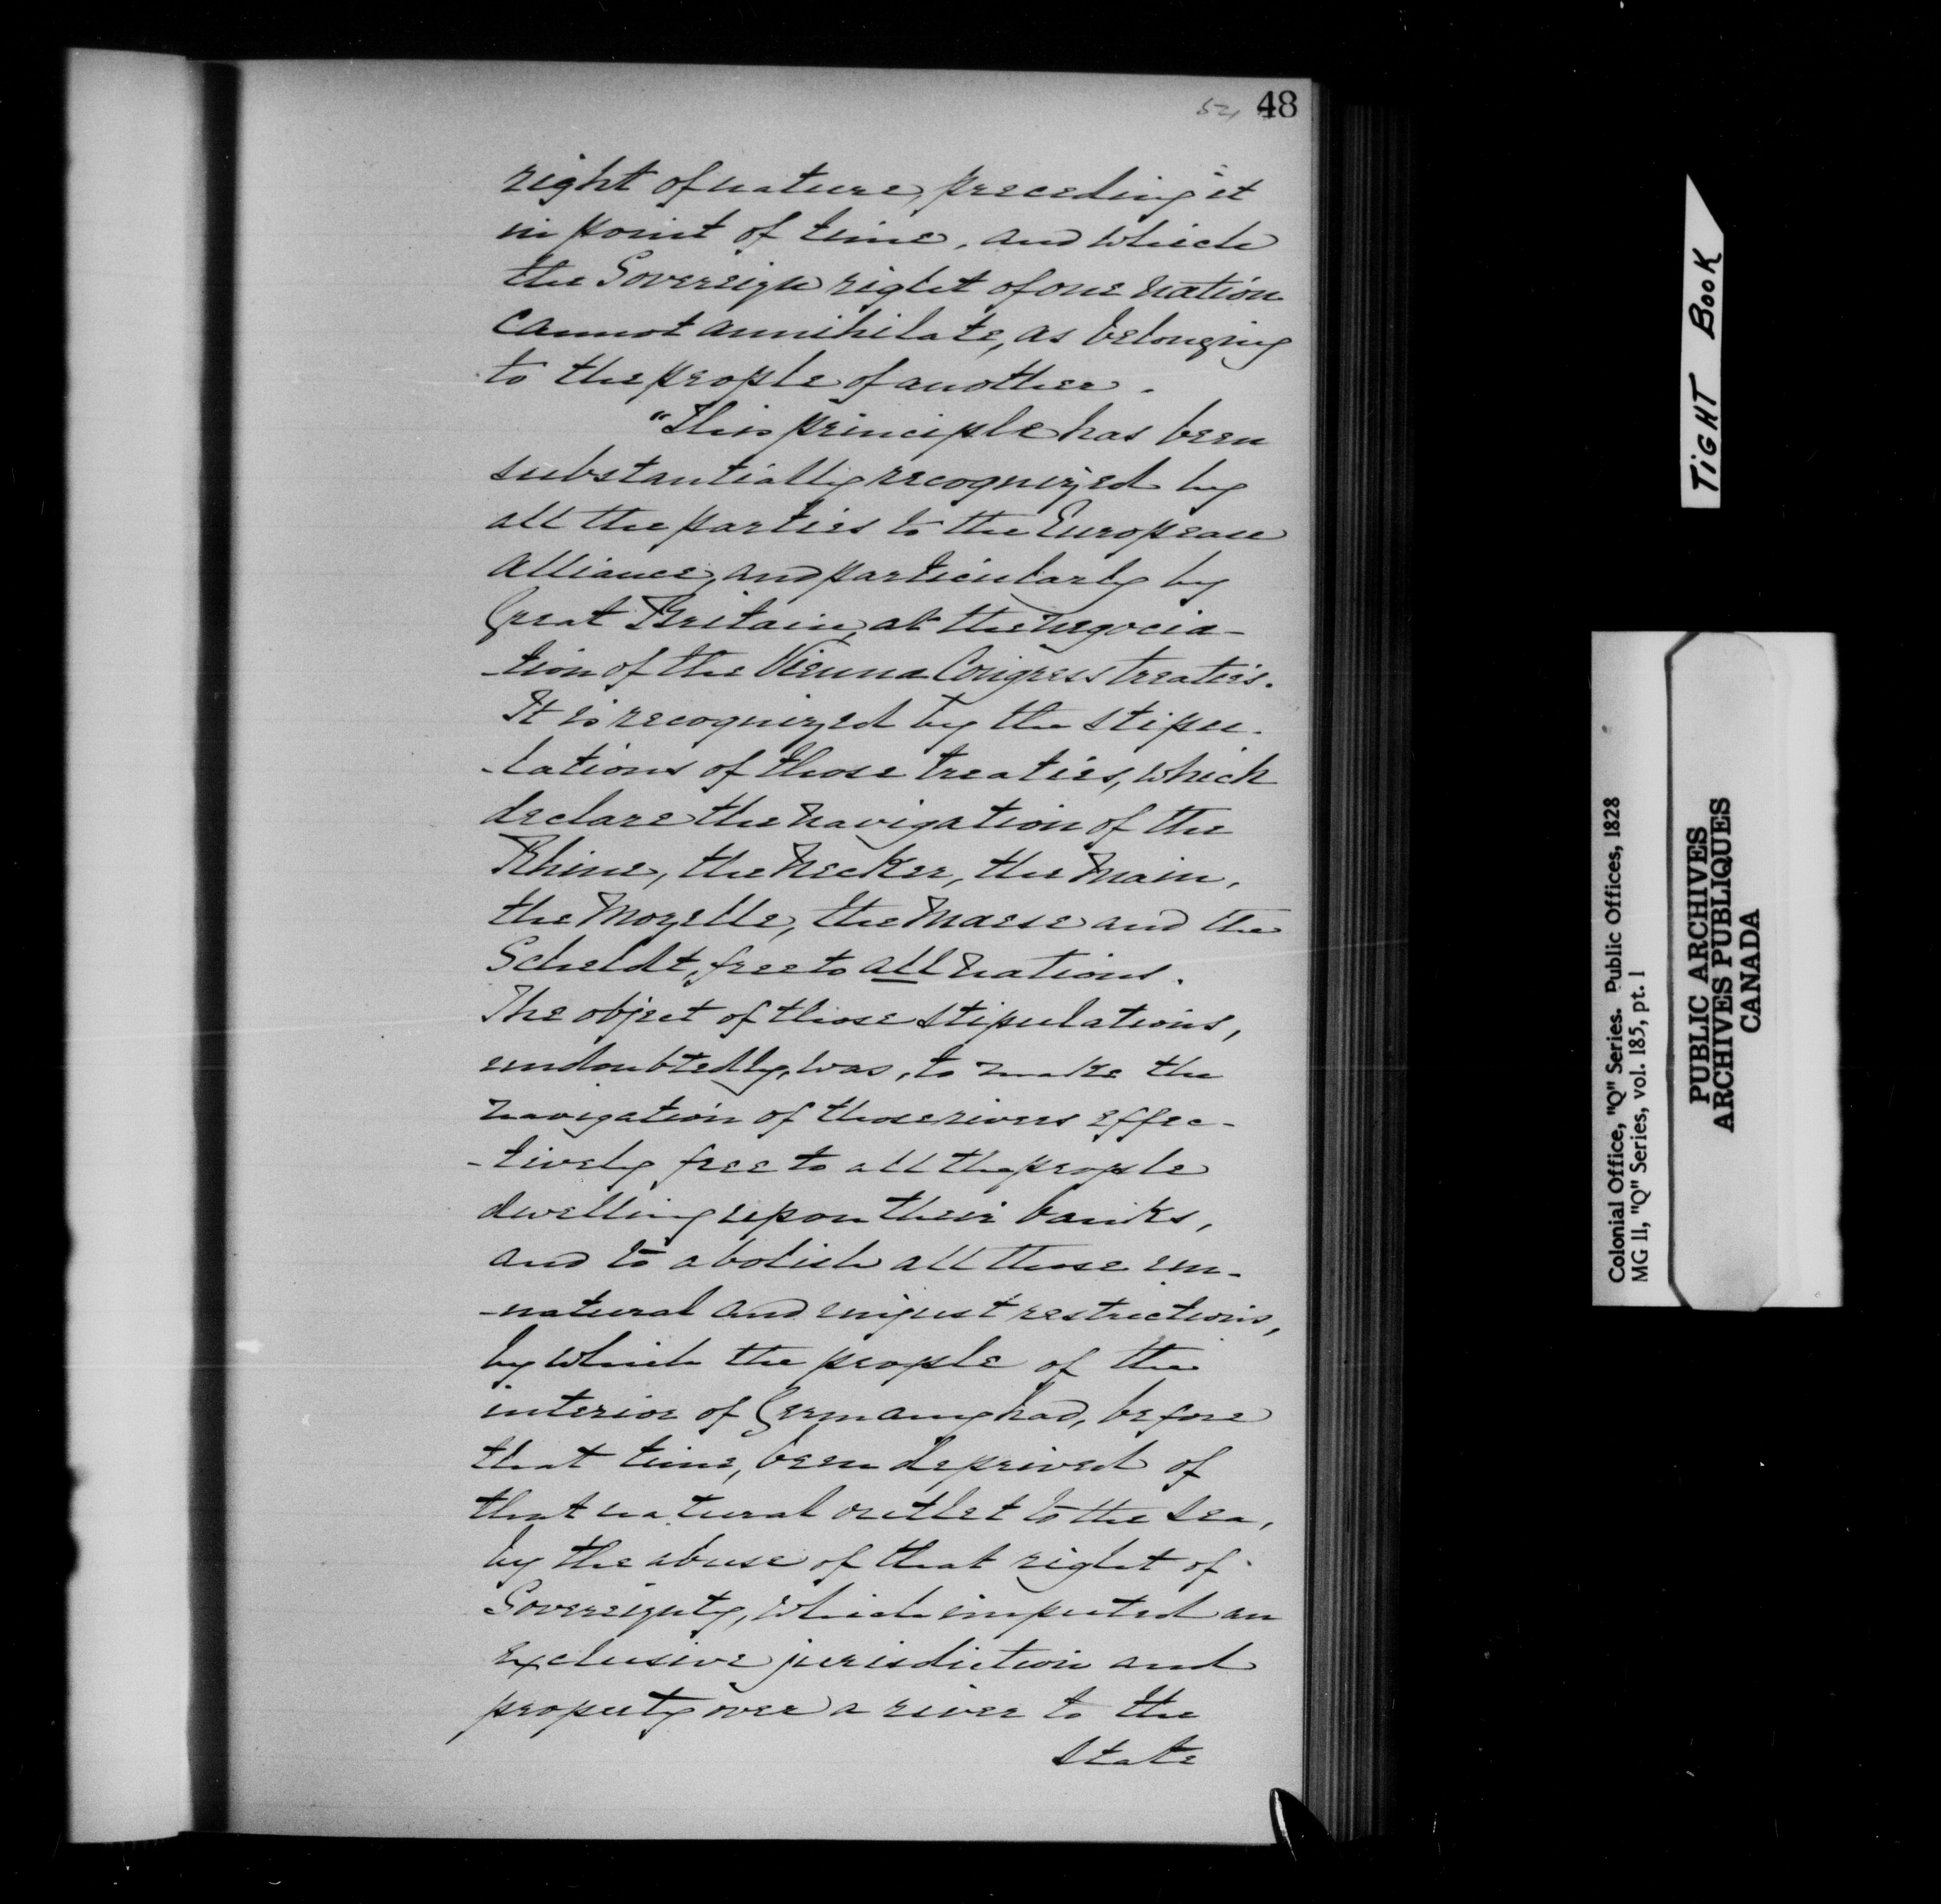 48
right of nature, preceding it
in point of time, and which
the Sovereign right of one nation
cannot annihilate, as belonging
to the people of another.
"This principle has been
substantially recognized by
all the parties to the European
Alliance, and particularly by
Great Britain, at the negocia-
-tion of the Vienna Congress treaties.
It is recognized by the stipu-
-lations of those treaties, which
declare the navigation of the
Rhine, the Necker, the Main,
the Mozelle, the Maese and the
Scheldt, free to all nations.
The object of those stipulations,
undoubtedly, was, to make the
navigation of those rivers effec-
-tively free to all the people
dwelling upon their banks,
and to abolish all those un-
-natural and unjust restrictions,
by which the people of the
interior of Germany had, before
that time, been deprived of
that natural outlet to the sea,
by the abuse of that right of
Sovereignty, which imputed an
exclusive jurisdiction and
property over a river to the
state
TIGHT BOOK
Colonial Office, "Q" Series. Public Offices, 1828
MG 11, "Q" Series, vol. 185, pt. 1
PUBLIC ARCHIVES
ARCHIVES PUBLIQUES
CANADA